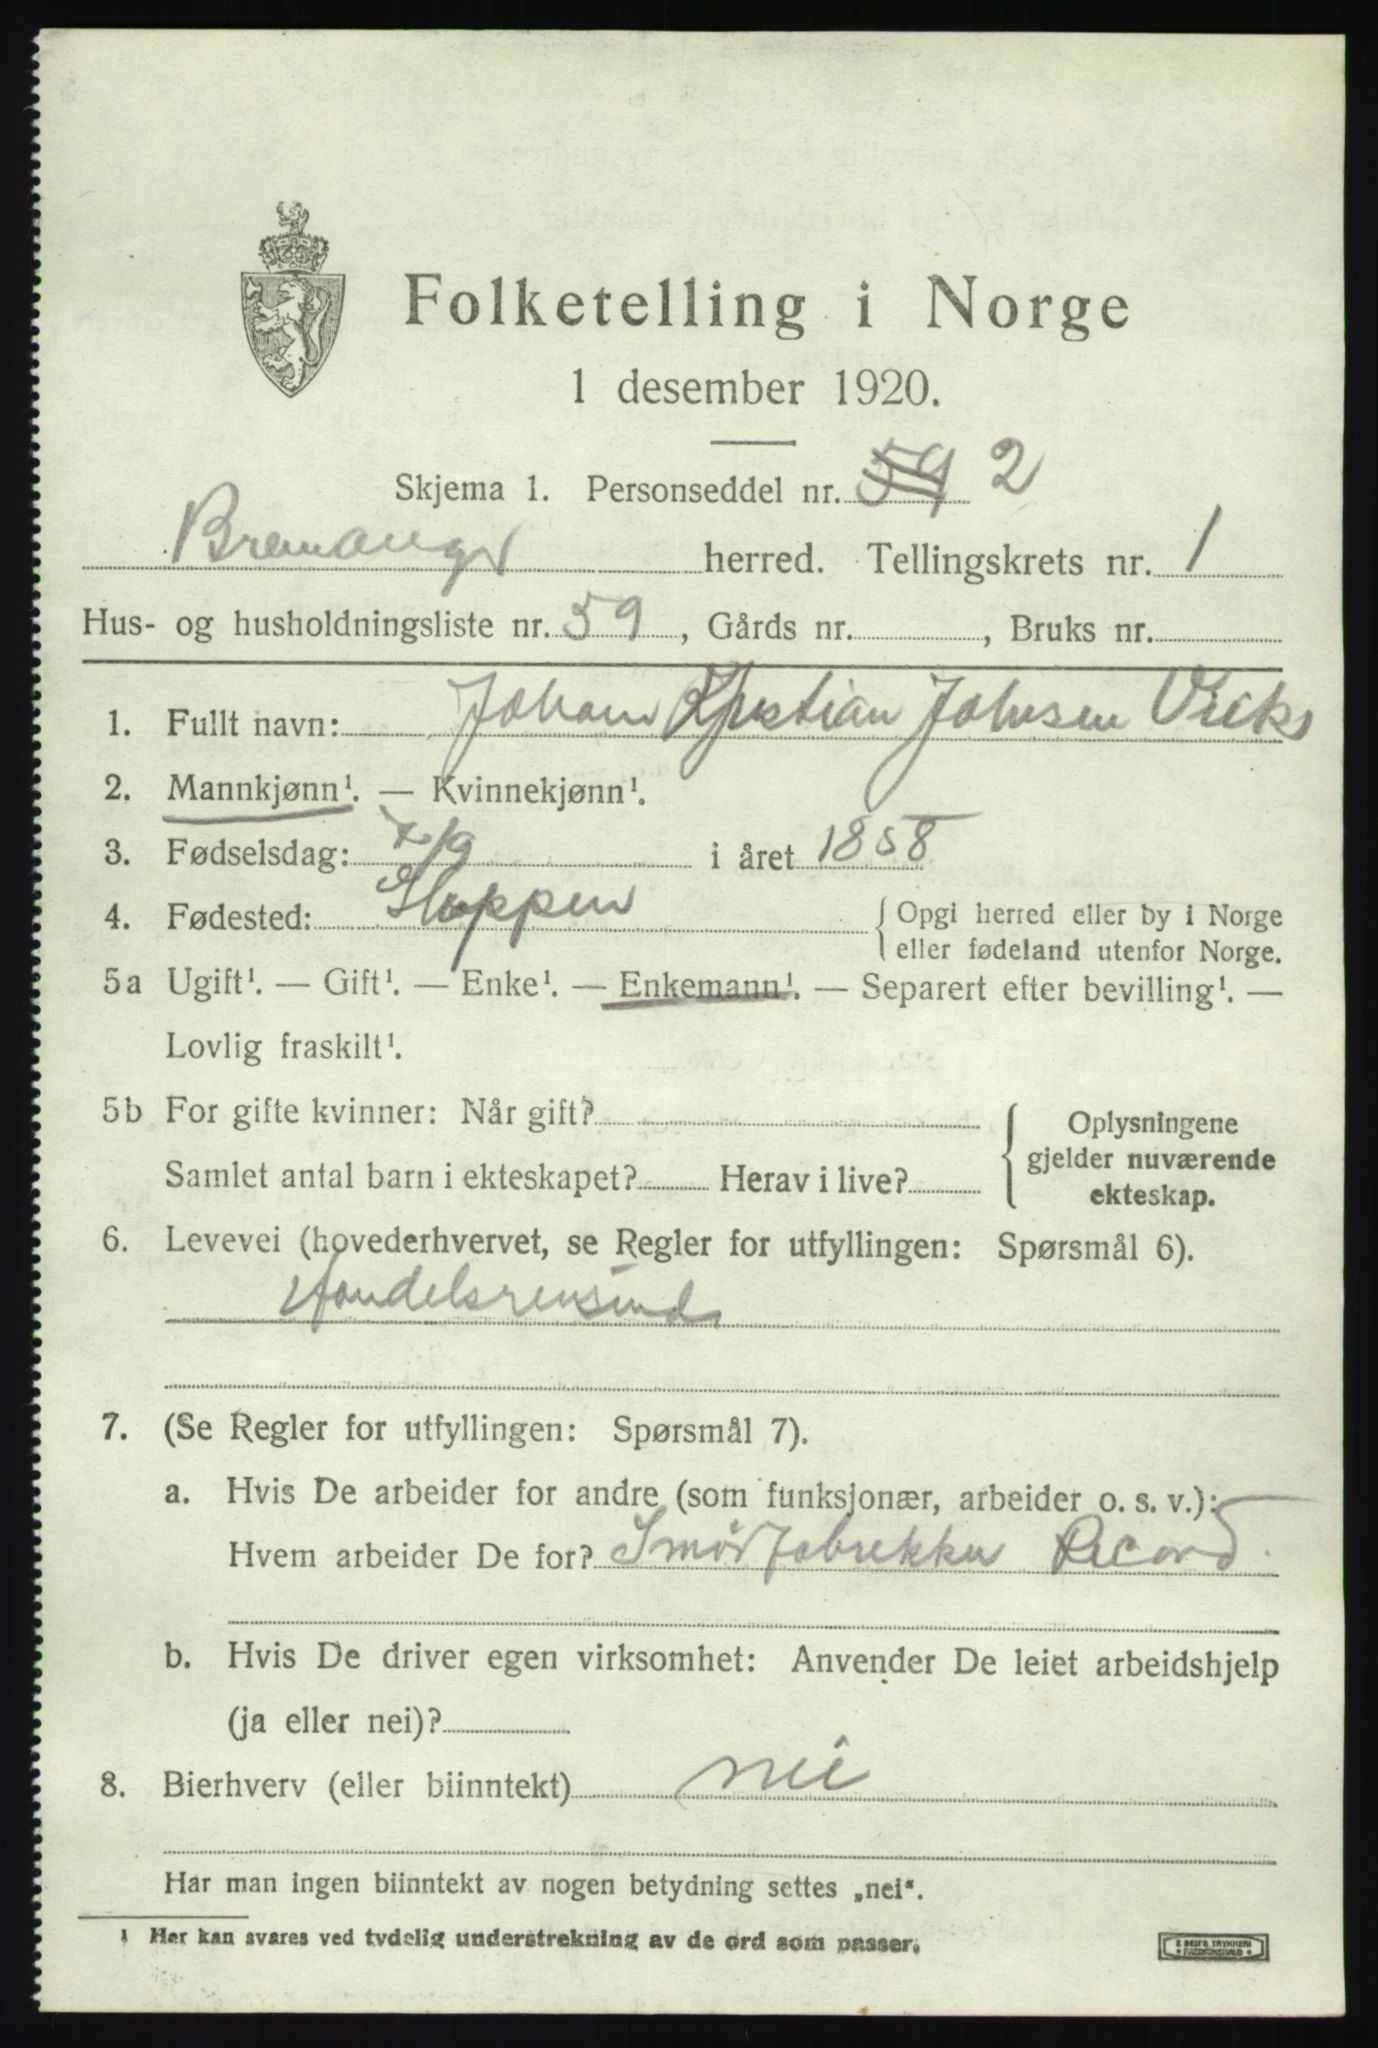 Folketelling i Norge
1 desember 1920.
Skjema 1. Personseddel nr. 59 2
Bremanger herred. Tellingskrets nr. 1
Hus- og husholdningsliste nr. 59, Gårds nr. , Bruks nr.
1. Fullt navn: Johan Kristian Johnsen
2. Mannkjønn¹. — Kvinnekjønn¹.
3. Fødselsdag: 7/9 i året 1858
4. Fødested: Gloppen { Opgi herred eller by i Norge
eller fødeland utenfor Norge.
5a Ugift¹. — Gift¹. — Enke¹. — Enkemann¹. — Separert efter bevilling¹. —
Lovlig fraskilt¹.
5b For gifte kvinner: Når gift? { Oplysningene
gjelder nuværende
Samlet antal barn i ekteskapet? Herav i live? ekteskap.
6. Levevei (hovederhvervet, se Regler for utfyllingen: Spørsmål 6).
Handelsreisende
7. (Se Regler for utfyllingen: Spørsmål 7).
a. Hvis De arbeider for andre (som funksjonær, arbeider o. s. v.):
Hvem arbeider De for? Smørfabrikken Record.
b. Hvis De driver egen virksomhet: Anvender De leiet arbeidshjelp
(ja eller nei)?
8. Bierhverv (eller biinntekt) nei
Har man ingen biinntekt av nogen betydning settes „nei“.
¹ Her kan svares ved tydelig understrekning av de ord som passer.